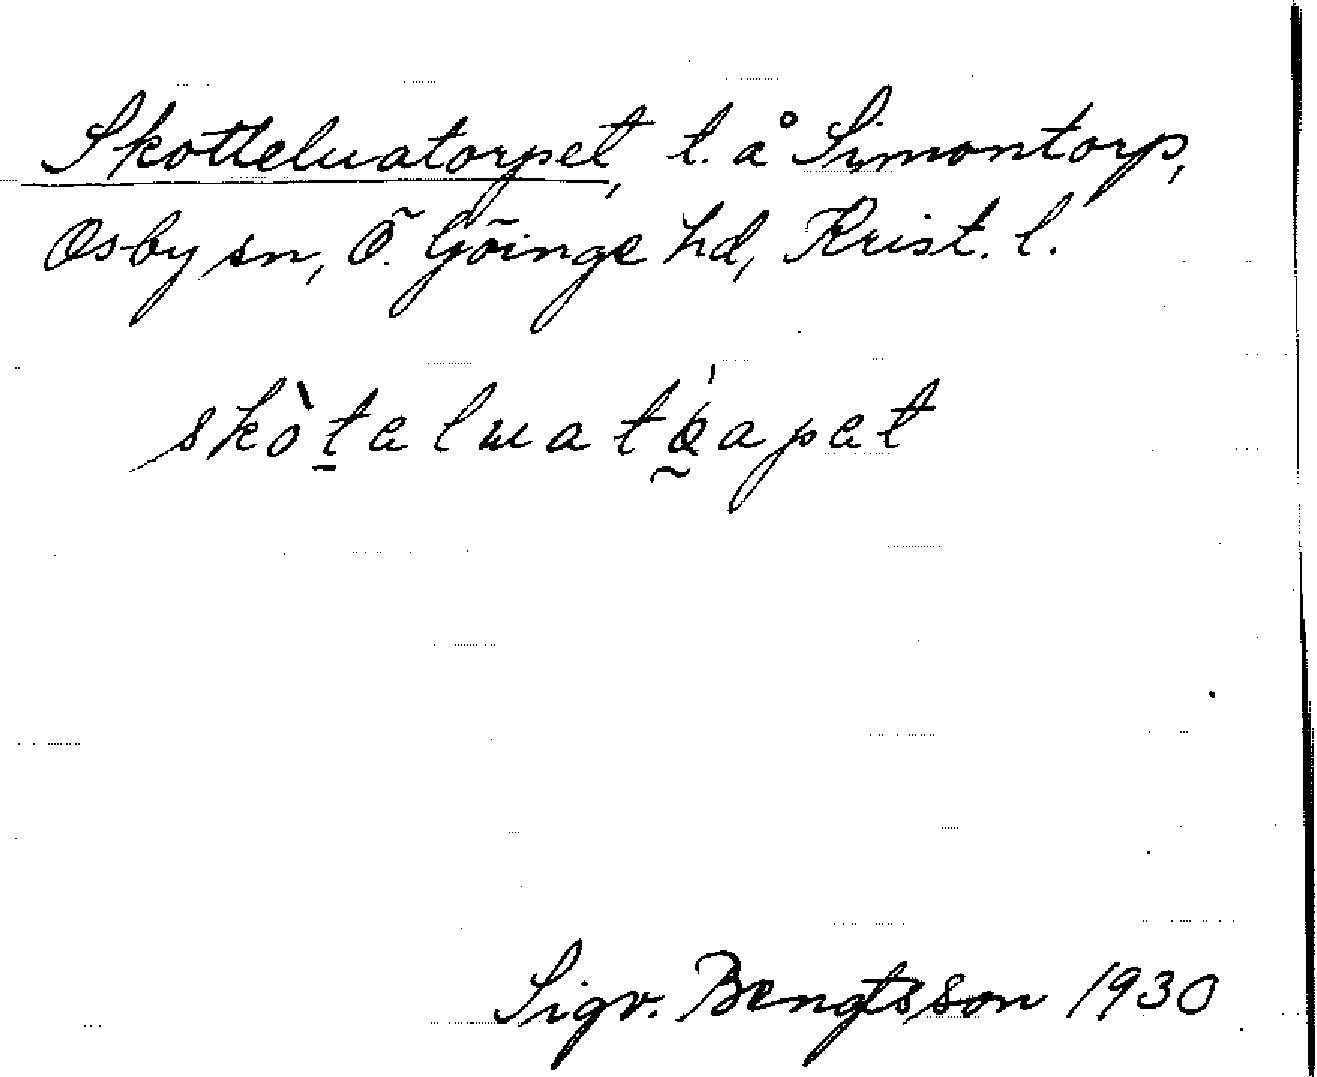 Skotteluatorpet, l. å Simontorp,
Osby sn, Ö. Göinge hd, Krist. l.
skòtaluatɑ̰apat
Sigv. Bengtsson 1930